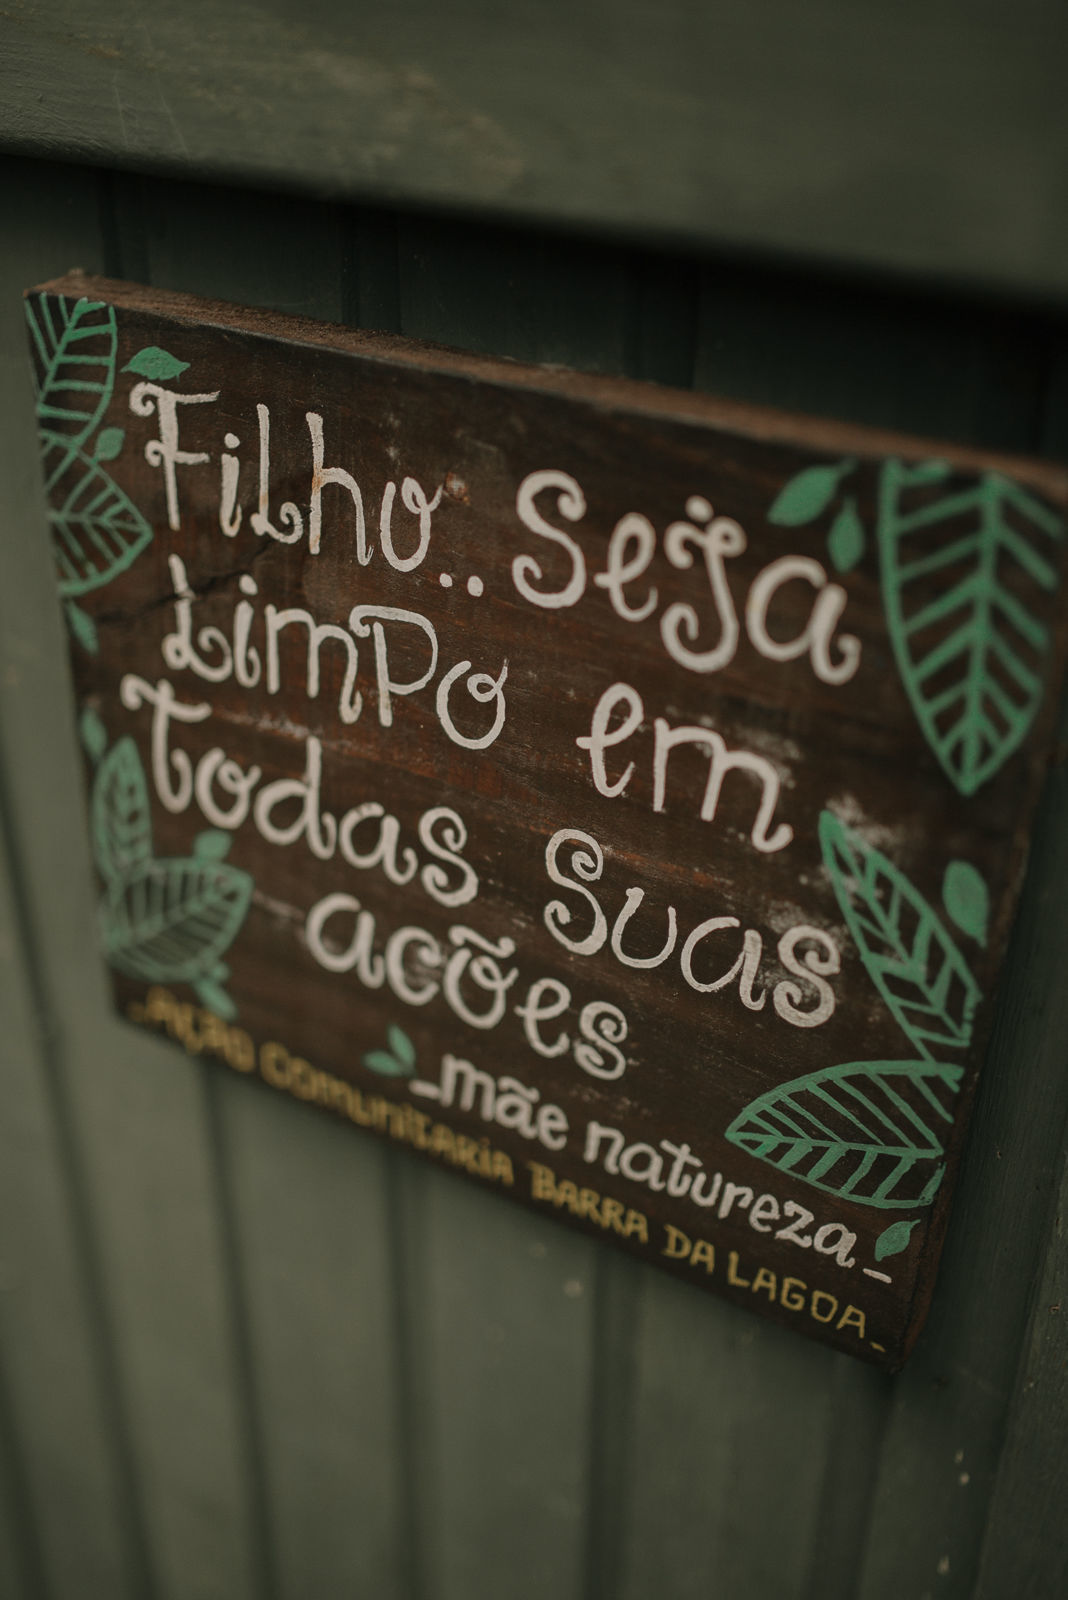 Filho.. Seja
Limpo em
Todas Suas
acões
_mãe natureza_
_AÇÃO COMUNITARIA BARRA DA LAGOA_